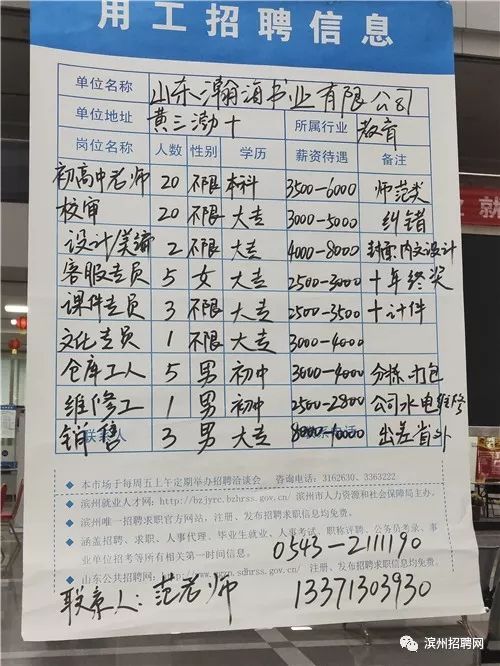 用工招聘信息
单位名称 山东瀚海书业有限公司
单位地址 黄三渤十 所属行业 教育
岗位名称 人数 性别 学历 薪资待遇 备注
初高中老师 20 不限 本科 3500-6000 师范类
校审 20 不限 大专 3000-5000 纠错
设计/美编 2 不限 大专 4000-8000 封面.内文设计
客服专员 5 女 大专 2500-3000 十年终奖
课件专员 3 不限 大专 2500-3500 十计件
文化专员 1 不限 大专 3000-4000
仓库工人 5 男 初中 3000-4000 分拣.打包
维修工 1 男 初中 2500-2800 公司水电维修
销售 3 男 大专 8000-10000 出差省外
◆ 本市场于每周五上午定期举办招聘洽谈会 咨询电话:3162630、3363222
◆ 滨州就业人才网:http://bzjyrc.bzhrss.gov.cn/ 滨州市人力资源和社会保障局主办。
◆ 滨州唯一招聘求职官方网站,注册、发布招聘求职信息均免费。
◆ 涵盖招聘、求职、人事代理、毕业生就业、人事考试、职称评聘、公务员考录、事
业单位招考等所有相关第一时间信息。
0543-2111190
◆ 山东公共招聘网 sdhrss.gov.cn/ 注册、发布招聘求职信息均免费。
联系人:范老师 13371303930
滨州招聘网